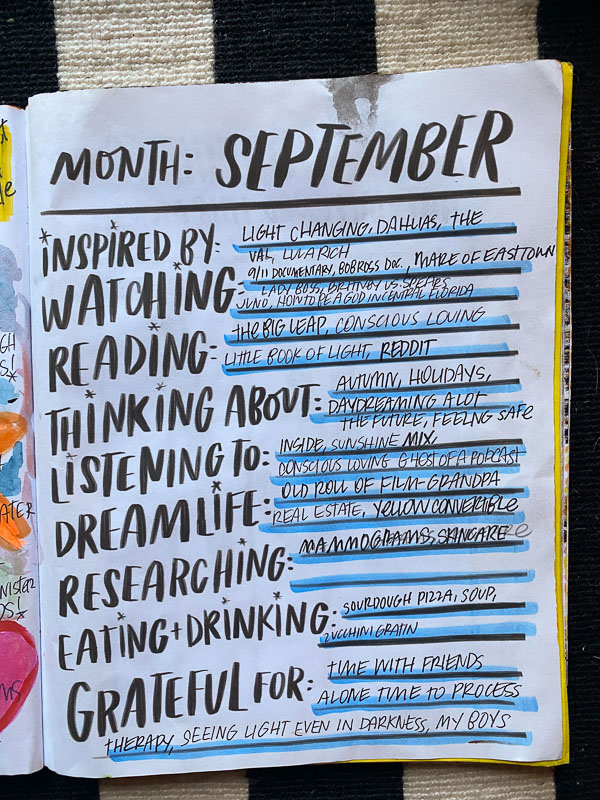 MONTH: SEPTEMBER
INSPIRED BY: LIGHT CHANGING, DAHLIAS, THE
VAL, LULARICH
WATCHING: 9/11 DOCUMENTARY, BOB ROSS DOC., MARE OF EASTTOWN
LADY BOSS, BRITNEY VS. SPEARS
JUNO, HOW TO BE A GOD IN CENTRAL FLORIDA
READING: THE BIG LEAP, CONSCIOUS LOVING
LITTLE BOOK OF LIGHT, REDDIT
THINKING ABOUT: AUTUMN, HOLIDAYS,
DAYDREAMING A LOT
THE FUTURE, FEELNG SAFE
LISTENING TO: INSIDE, SUNSHINE MIX,
CONSCIOUS LOVING GHOST OF A PODCAST
DREAM LIFE: OLD ROLL OF FILM-GRANDPA
REAL ESTATE, YELLOW CONVERTIBLE
RESEARCHING: MAMMOGRAMS, SKINCARE
EATING + DRINKING: SOURDOUGH PIZZA, SOUP,
ZUCCHINI GRATIN
GRATEFUL FOR: TIME WITH FRIENDS
ALONE TIME TO PROCESS
THERAPY, SEEING LIGHT EVEN IN DARKNESS, MY BOYS